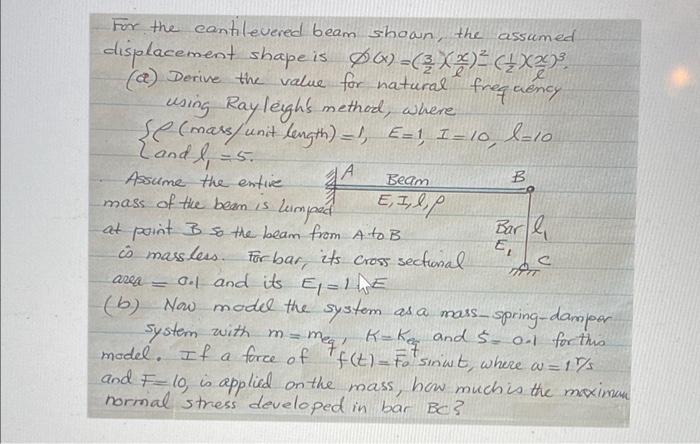 For the cantilevered beam shown, the assumed
displacement shape is ϕ(x) = (3/2)(x/l)² - (1/2)(x/l)³.
(a) Derive the value for natural frequency
using Rayleigh's method, where
{ρ (mass/unit length) = 1, E = 1, I = 10, l = 10
{and l₁ = 5.
Assume the entire
A Beam B
mass of the beam is lumped
E, I, l, ρ
at point B so the beam from A to B
Bar l₁
E₁
is massless. For bar, its cross sectional
C
area = 0.1 and its E₁ = 1 E
(b) Now model the system as a mass-spring-damper
system with m = meq, K = Keq and ζ = 0.1 for this
model. If a force of f(t) = F₀ sinωt, where ω = 1 r/s
and F = 10, is applied on the mass, how much is the maximum
normal stress developed in bar BC?